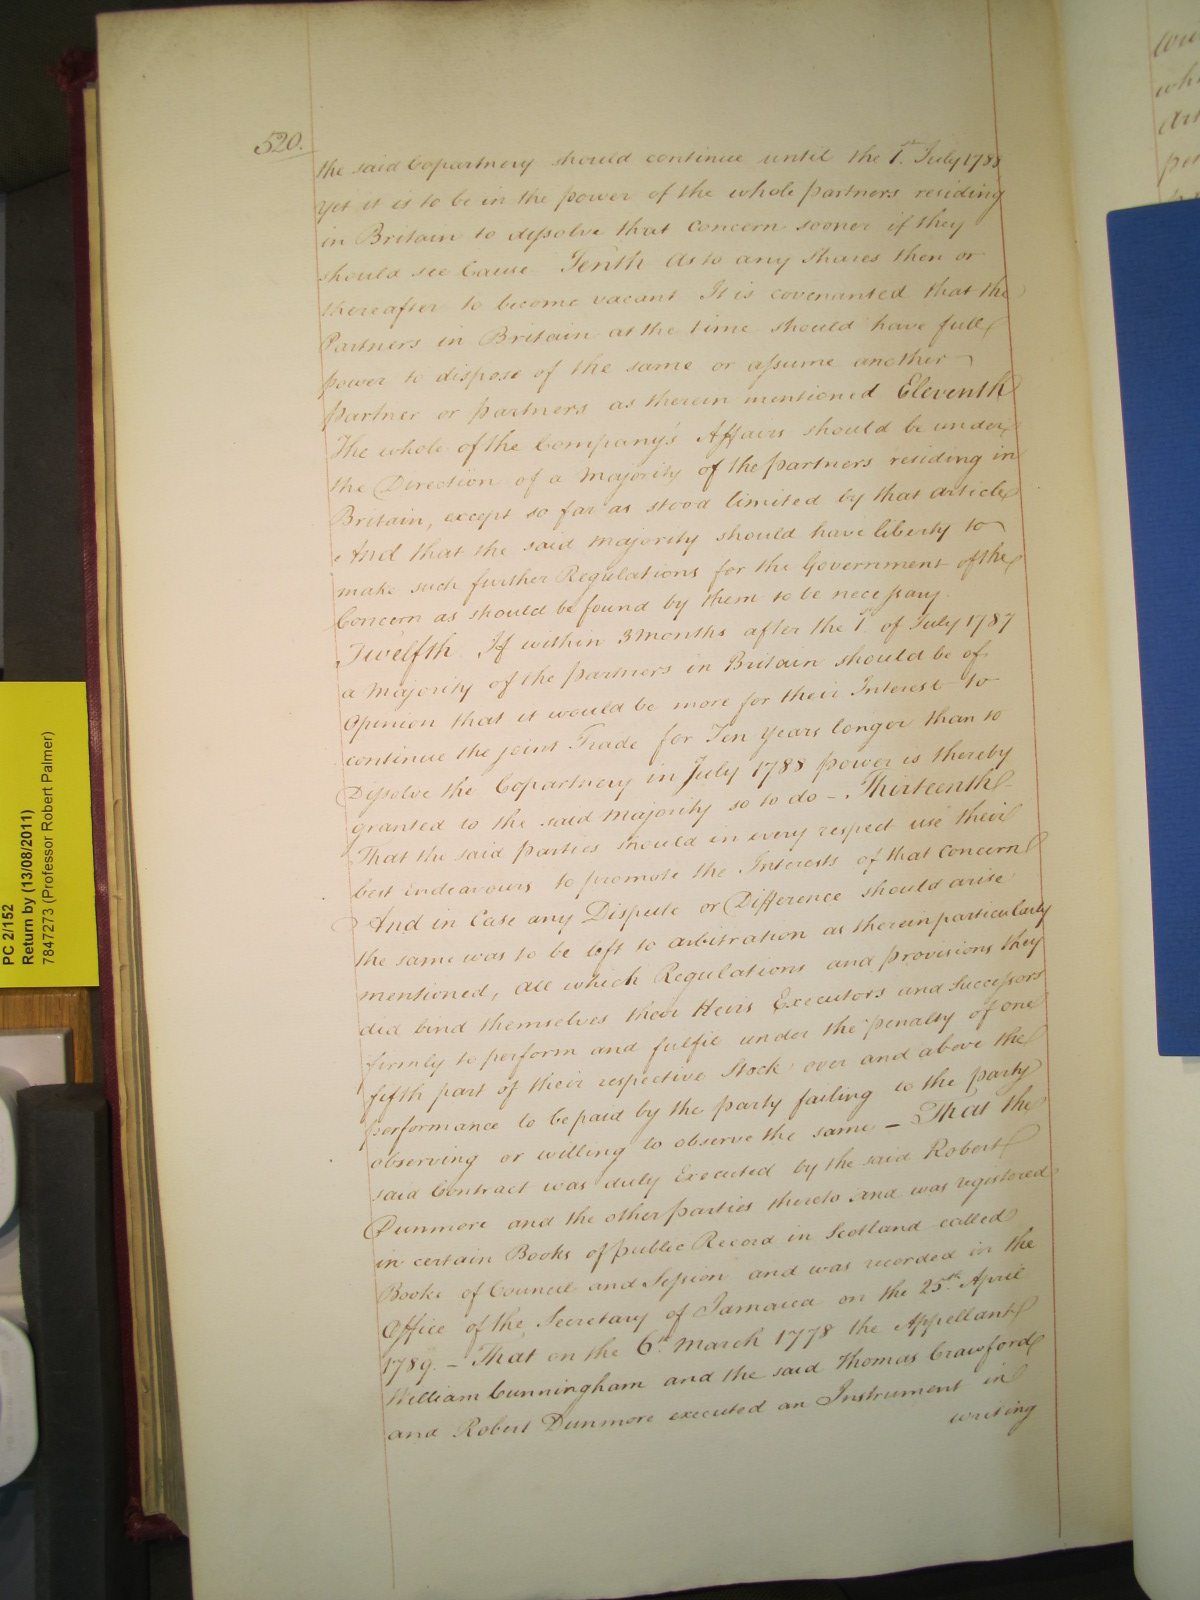 520.
the said Copartnery should continue until the 1st. July 1788
yet it is to be in the power of the whole partners residing
in Britain to dissolve that Concern sooner if they
should see Cause Tenth As to any Shares then or
thereafter to become vacant It is covenanted that the
Partners in Britain at the time should have full
power to dispose of the same or assume another
partner or partners as therein mentioned Eleventh
The whole of the Company's Affairs should be under
the Direction of a Majority of the partners residing in
Britain, except so far as stood limited by that article
And that the said majority should have liberty to
make such further Regulations for the Government of the
Concern as should be found by them to be necessary.
Twelfth If within 3 months after the 1st of July 1787
a Majority of the partners in Britain should be of
Opinion that it would be more for their Interest to
continue the joint Trade for Ten Years longer than to
Dissolve the Copartnery in July 1788 power is thereby
granted to the said Majority so to do – Thirteenth
That the said parties should in every respect use their
best endeavours to promote the Interests of that Concern
And in Case any Dispute or Difference should arise
the same was to be left to arbitration as therein particularly
mentioned, all which Regulations and provisions they
did bind themselves their Heirs Executors and Successors
firmly to perform and fulfil under the penalty of one
fifth part of their respective Stock over and above the
performance to be paid by the party failing to the party
observing or willing to observe the same – That the
said Contract was duly Executed by the said Robert
Dunmore and the other parties thereto and was registered
in certain Books of public Record in Scotland called
Books of Council and Session and was recorded in the
Office of the Secretary of Jamaica on the 25th. April
1789. – That on the 6th. March 1778 the Appellant
William Cunningham and the said Thomas Crawford
and Robert Dunmore executed an Instrument in
writing
PC 2/152
Return by (13/08/2011)
7847273 (Professor Robert Palmer)